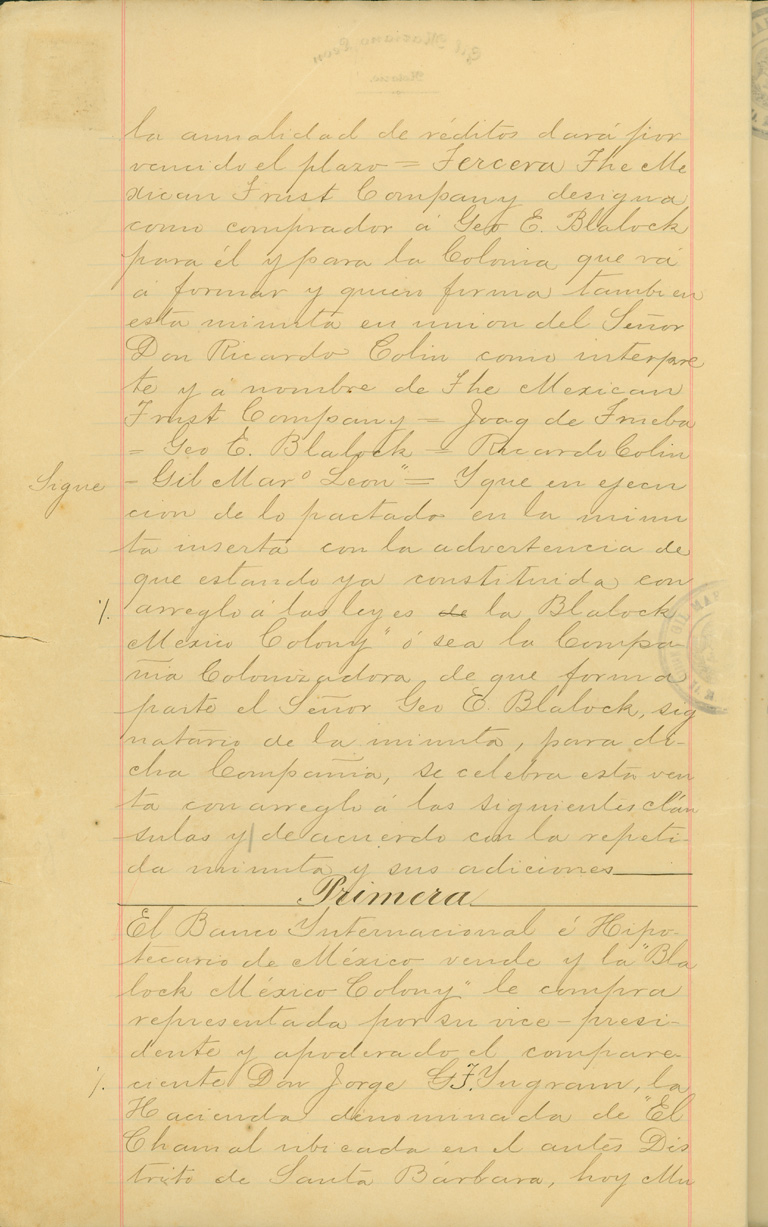 la anualidad de réditos dará por
vencido el plazo = Tercera The Me
xican Trust Company designa
como comprador á Geo E. Blalock
para él y para la Colonia que vá
a formar y quien firma tambien
esta minuta en union del Señor
Don Ricardo Colin como interpre
te y a nombre de The Mexican
Trust Company = Joaq de Trueba
= Geo E. Blalock = Ricardo Colin
Sigue = Gil Marº Leon" = Y que en ejecu
cion de lo pactado en la minu
ta inserta con la advertencia de
que estando ya constituida con
arreglo á las leyes de la Blalock
Mexico Colony" ó sea la Compa-
ñia Colonizadora de que forma
parte el Señor Geo E. Blalock, sig
natario de la minuta, para di-
cha Compañia, se celebra esta ven
ta con arreglo á las siguientes cláu
sulas y de acuerdo con la repeti-
da minuta y sus adiciones
Primera
El Banco Internacional é Hipo-
tecario de México vende y la "Bla
lock México Colony" le compra
representada por su vice-presi-
dente y apoderado el compare-
ciente Don Jorge G.F. Yngram, la
Hacienda denominada de "El
Chamal ubicada en el antes Dis
trito de Santa Bárbara, hoy Mu